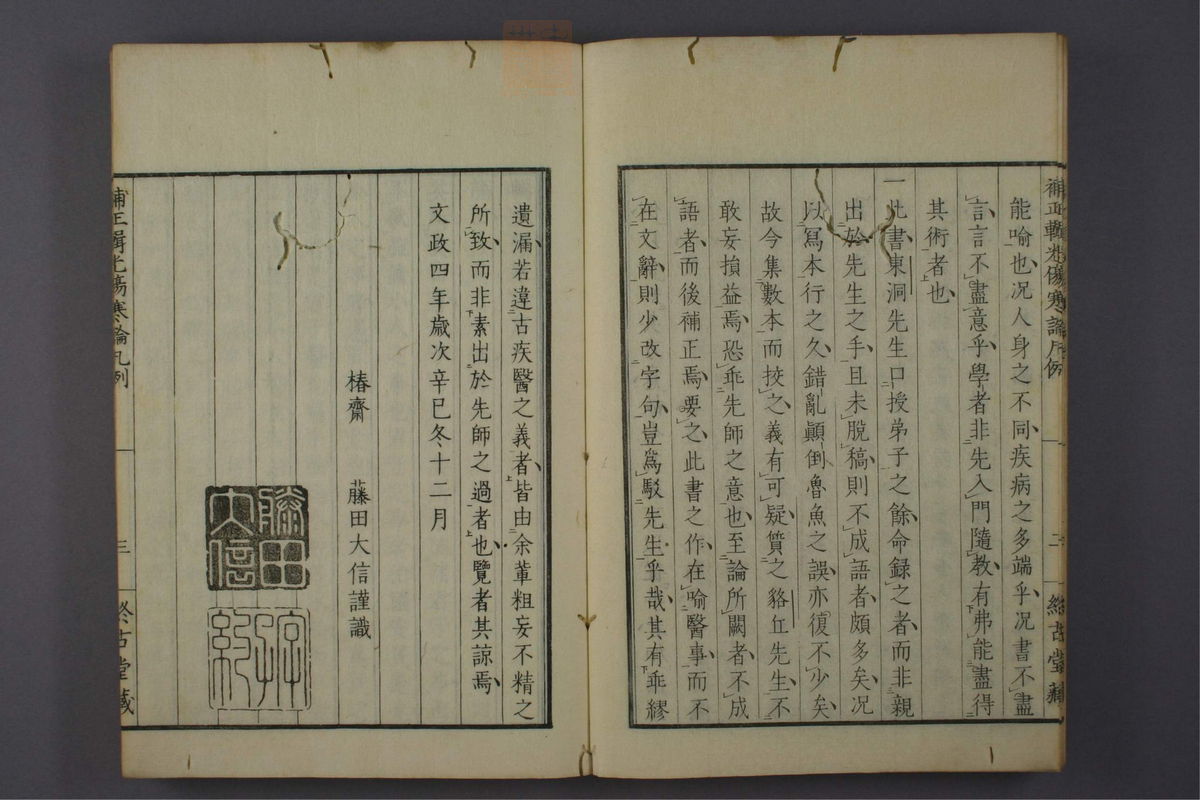 能喻也况人身之不同疾病之多端乎况書不盡
言言不盡意乎學者非先入門隨教有弗能盡得
其術者也
一此書東洞先生口授弟子之餘命録之者而非親
出於先生之手且未脫稿則不成語者頗多矣况
以寫本行之久錯亂顚倒魯魚之誤亦復不少矣
故今集數本而挍之義有可疑質之貉丘先生不
敢妄損益焉恐乖先師之意也至論所闕者不成
語者而後補正焉要之此書之作在喻醫事而不
在文辭則少改字句豈爲駁先生乎哉其有乖繆
遺漏若違古疾醫之義者皆由余輩粗妄不精之
所致而非素出於先師之過者也覽者其諒焉
文政四年歲次辛巳冬十二月
椿齋 藤田大信謹識
藤田大信
補正輯光傷寒論凡例 三 終古堂藏
補正輯光傷寒論凡例 二 終古堂藏